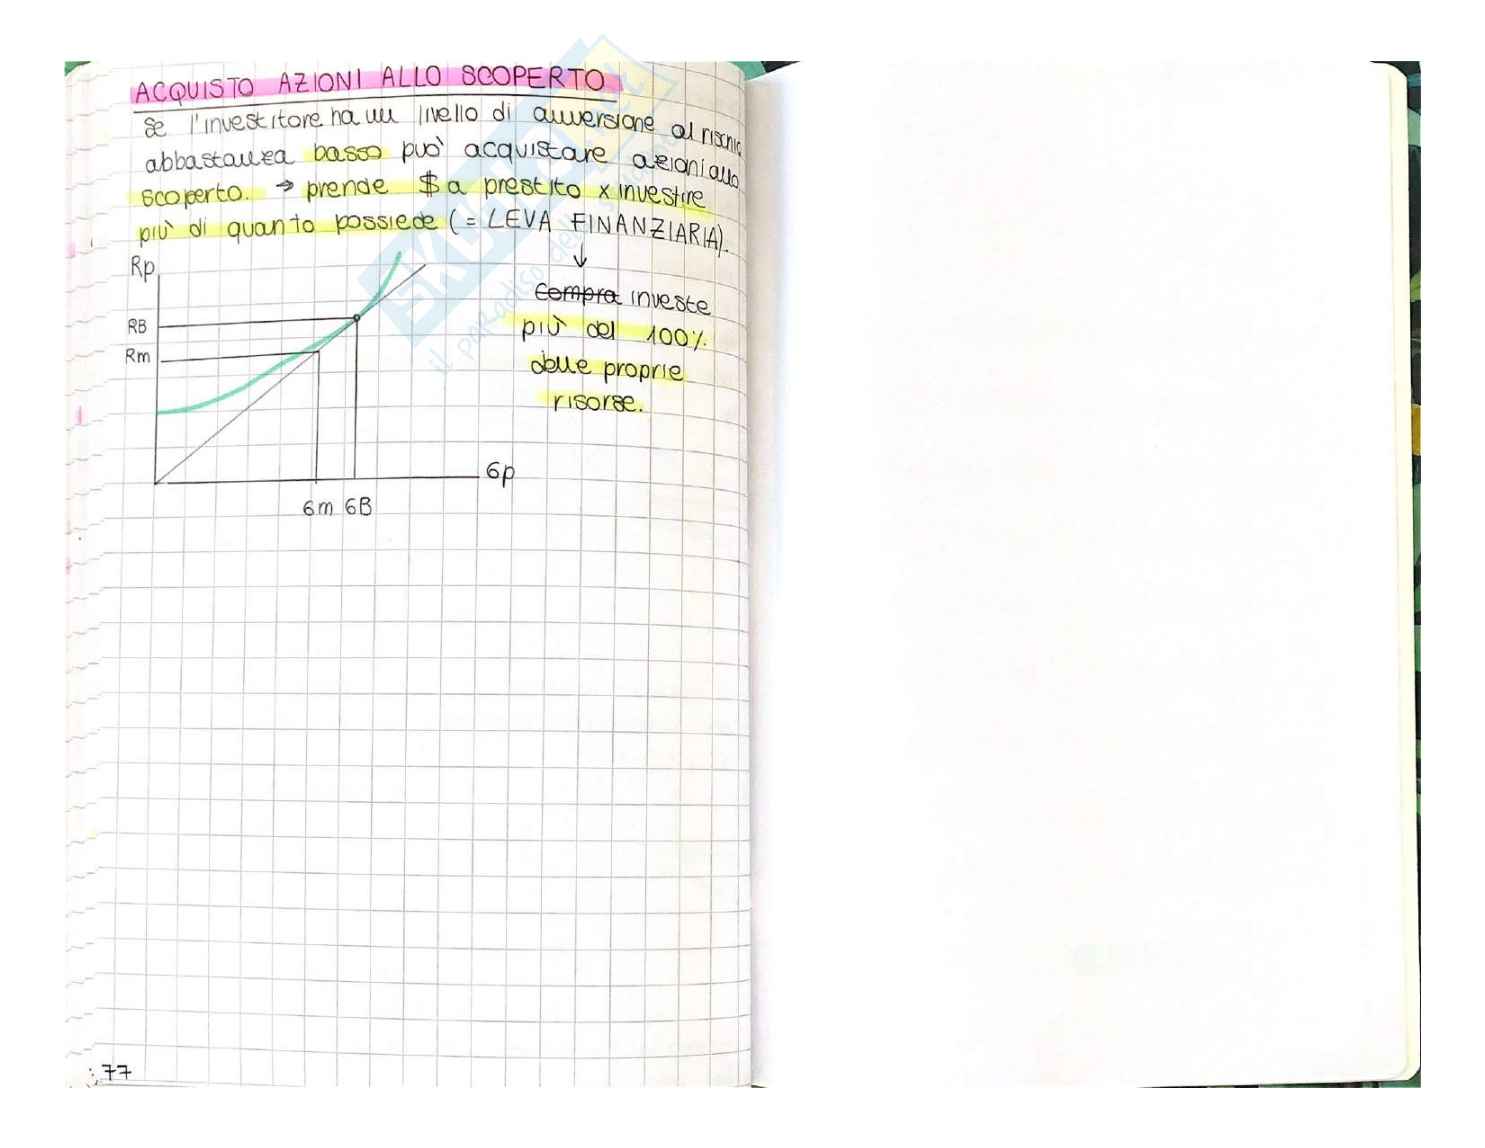 ACQUISTO AZIONI ALLO SCOPERTO
Se l'investitore ha un livello di avversione al rischio
abbastanza basso può acquistare azioni allo
scoperto. → prende $ a prestito x investire
più di quanto possiede (= LEVA FINANZIARIA).
↓
Compra investe
più del 100%
delle proprie
risorse.
Rp
RB
Rm
6p
6m 6B
77